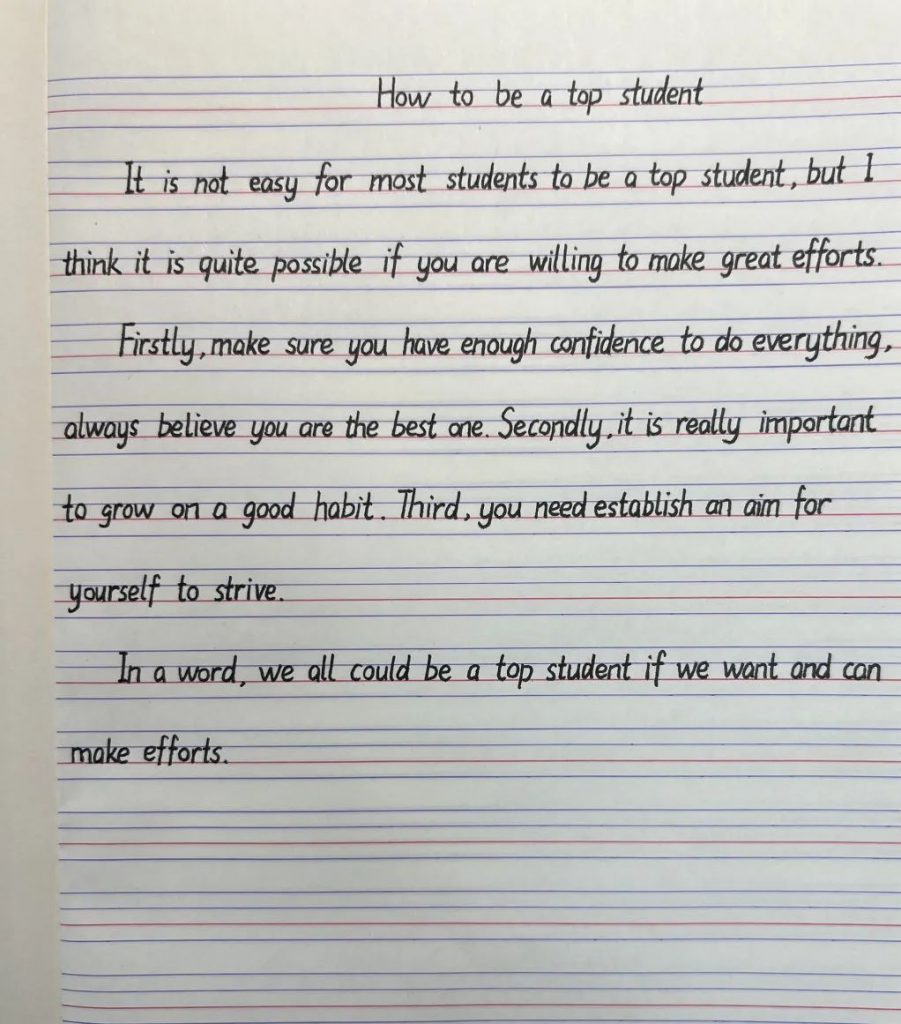 How to be a top student
It is not easy for most students to be a top student, but I
think it is quite possible if you are willing to make great efforts.
Firstly, make sure you have enough confidence to do everything,
always believe you are the best one. Secondly, it is really important
to grow on a good habit. Third, you need establish an aim for
yourself to strive.
In a word, we all could be a top student if we want and can
make efforts.